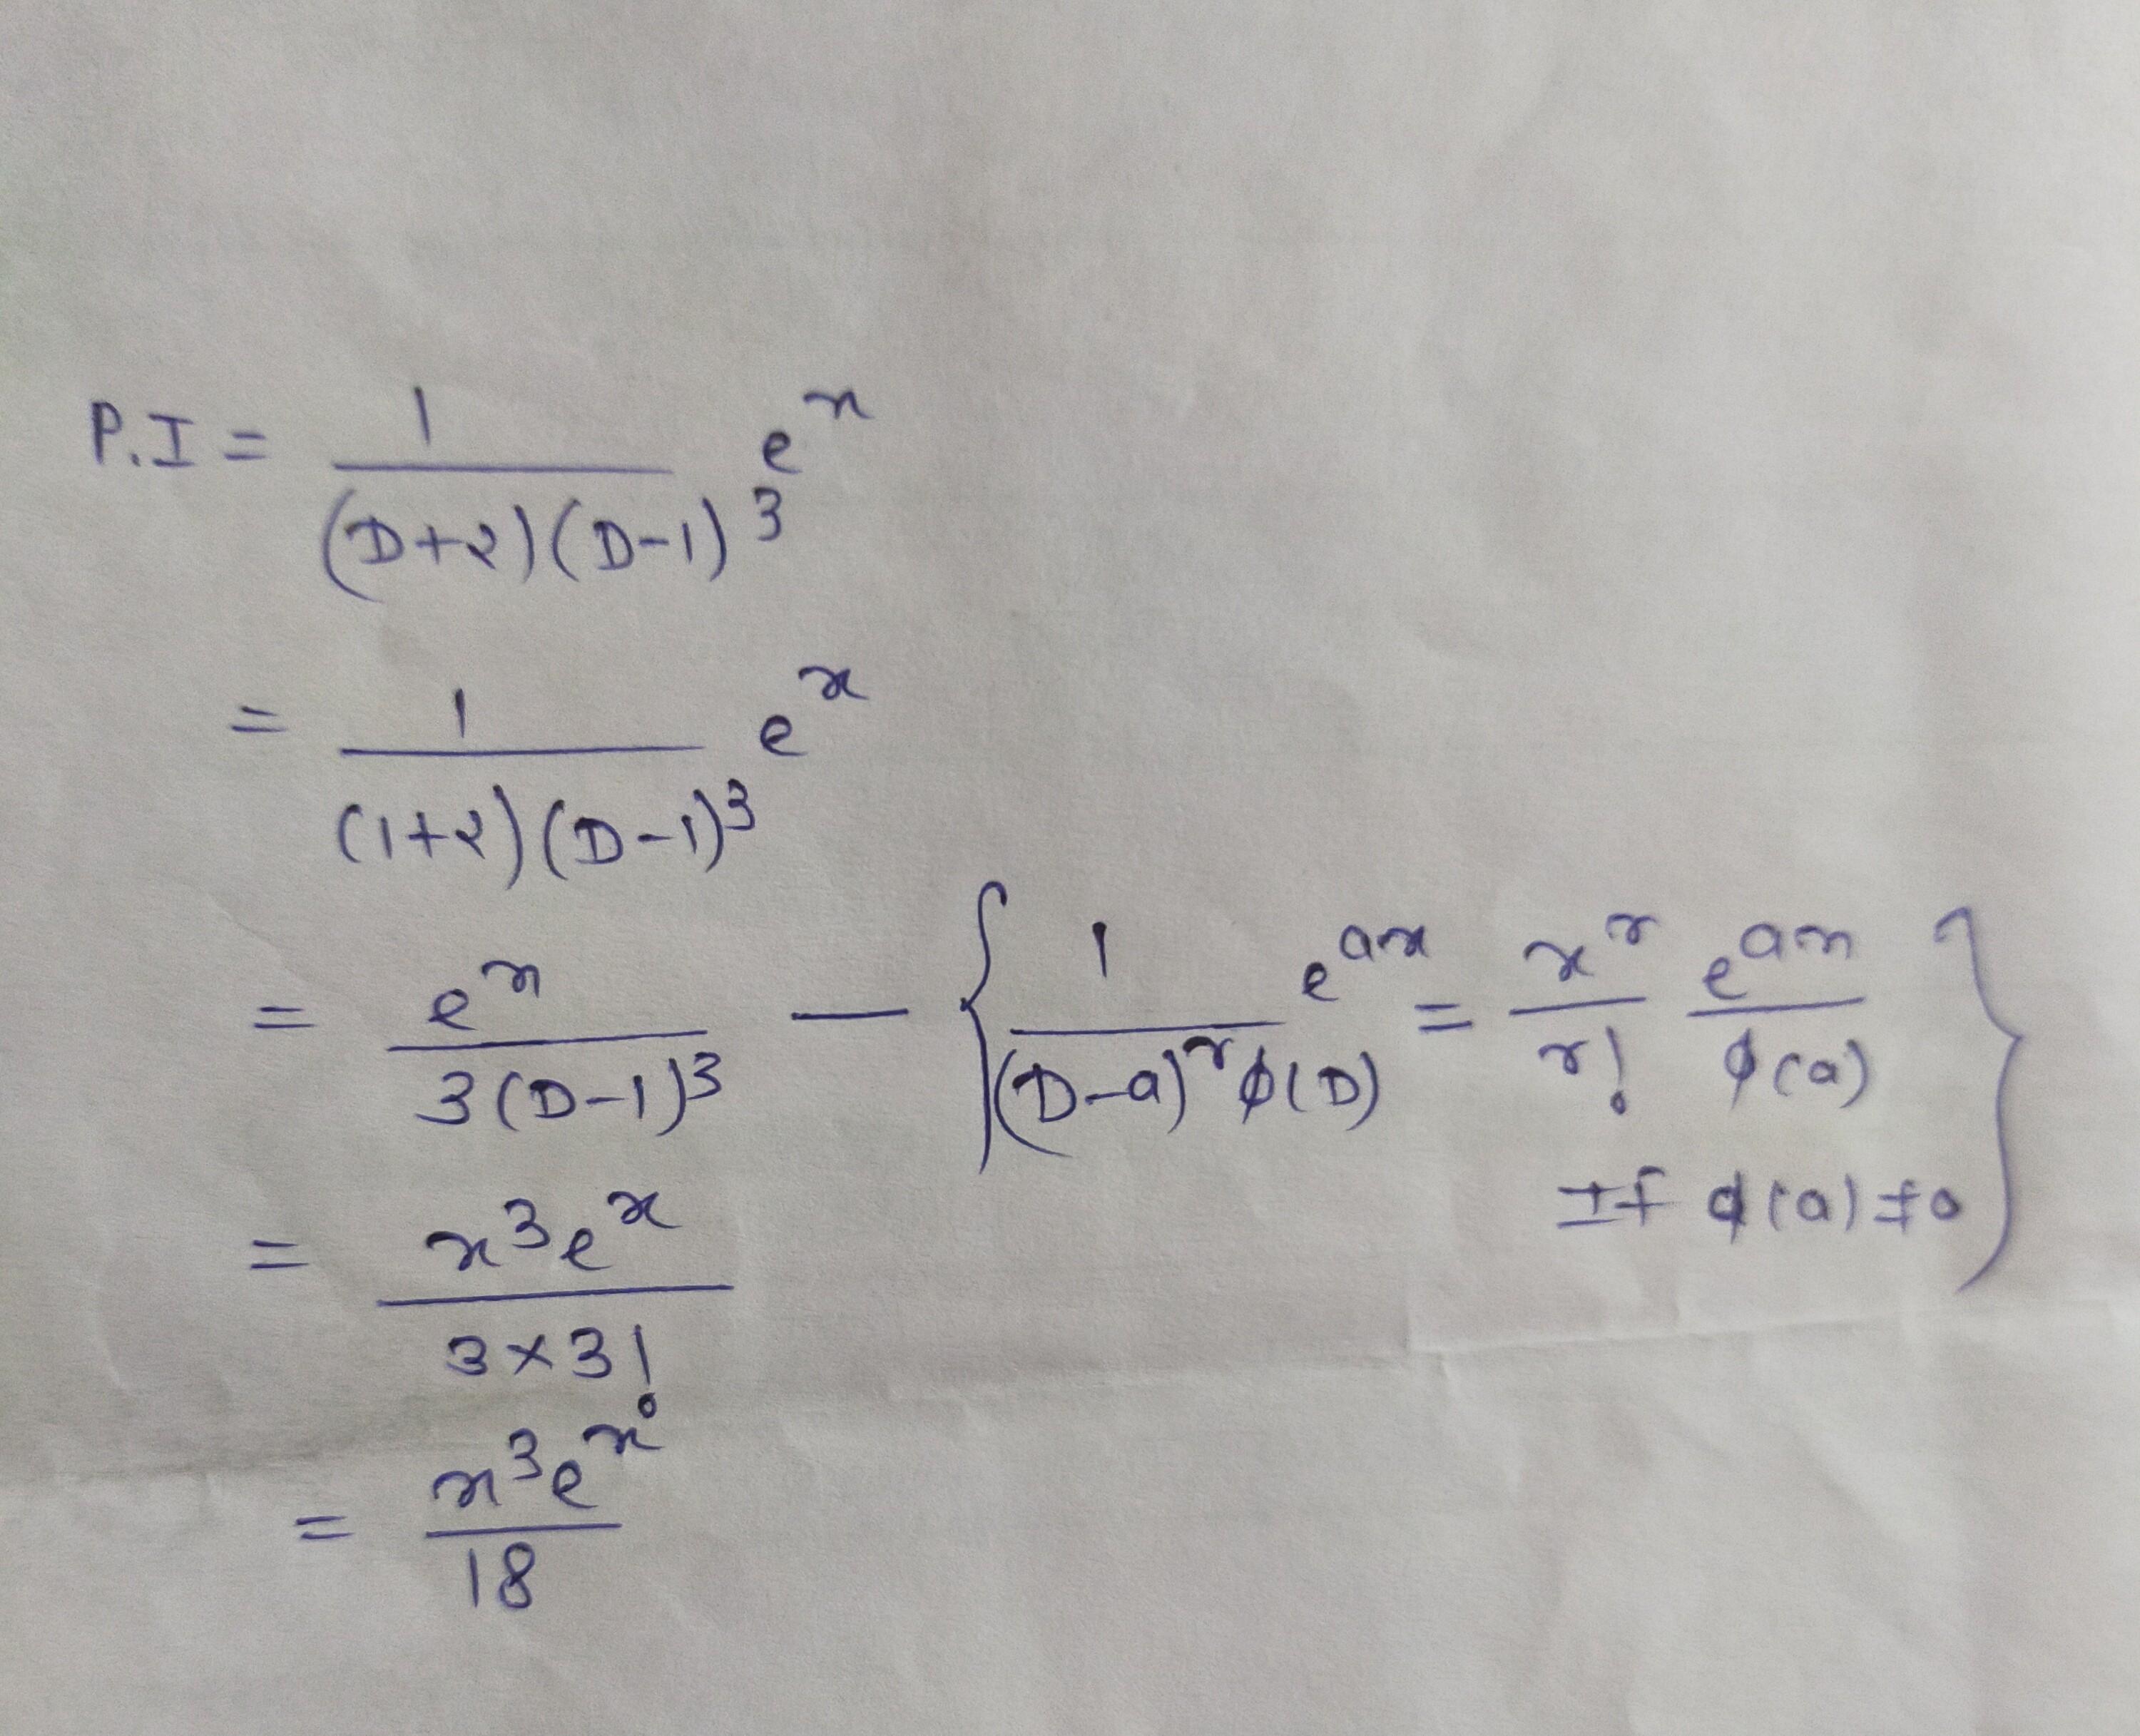 P.I = 1/((D+2)(D-1)^3) e^x
= 1/((1+2)(D-1)^3) e^x
= e^x/(3(D-1)^3) — {1/((D-a)^r ϕ(D)) e^(ax) = x^r/r! e^(ax)/ϕ(a)
If ϕ(a) ≠ 0}
= x^3 e^x/(3×3!)
= x^3 e^x/18